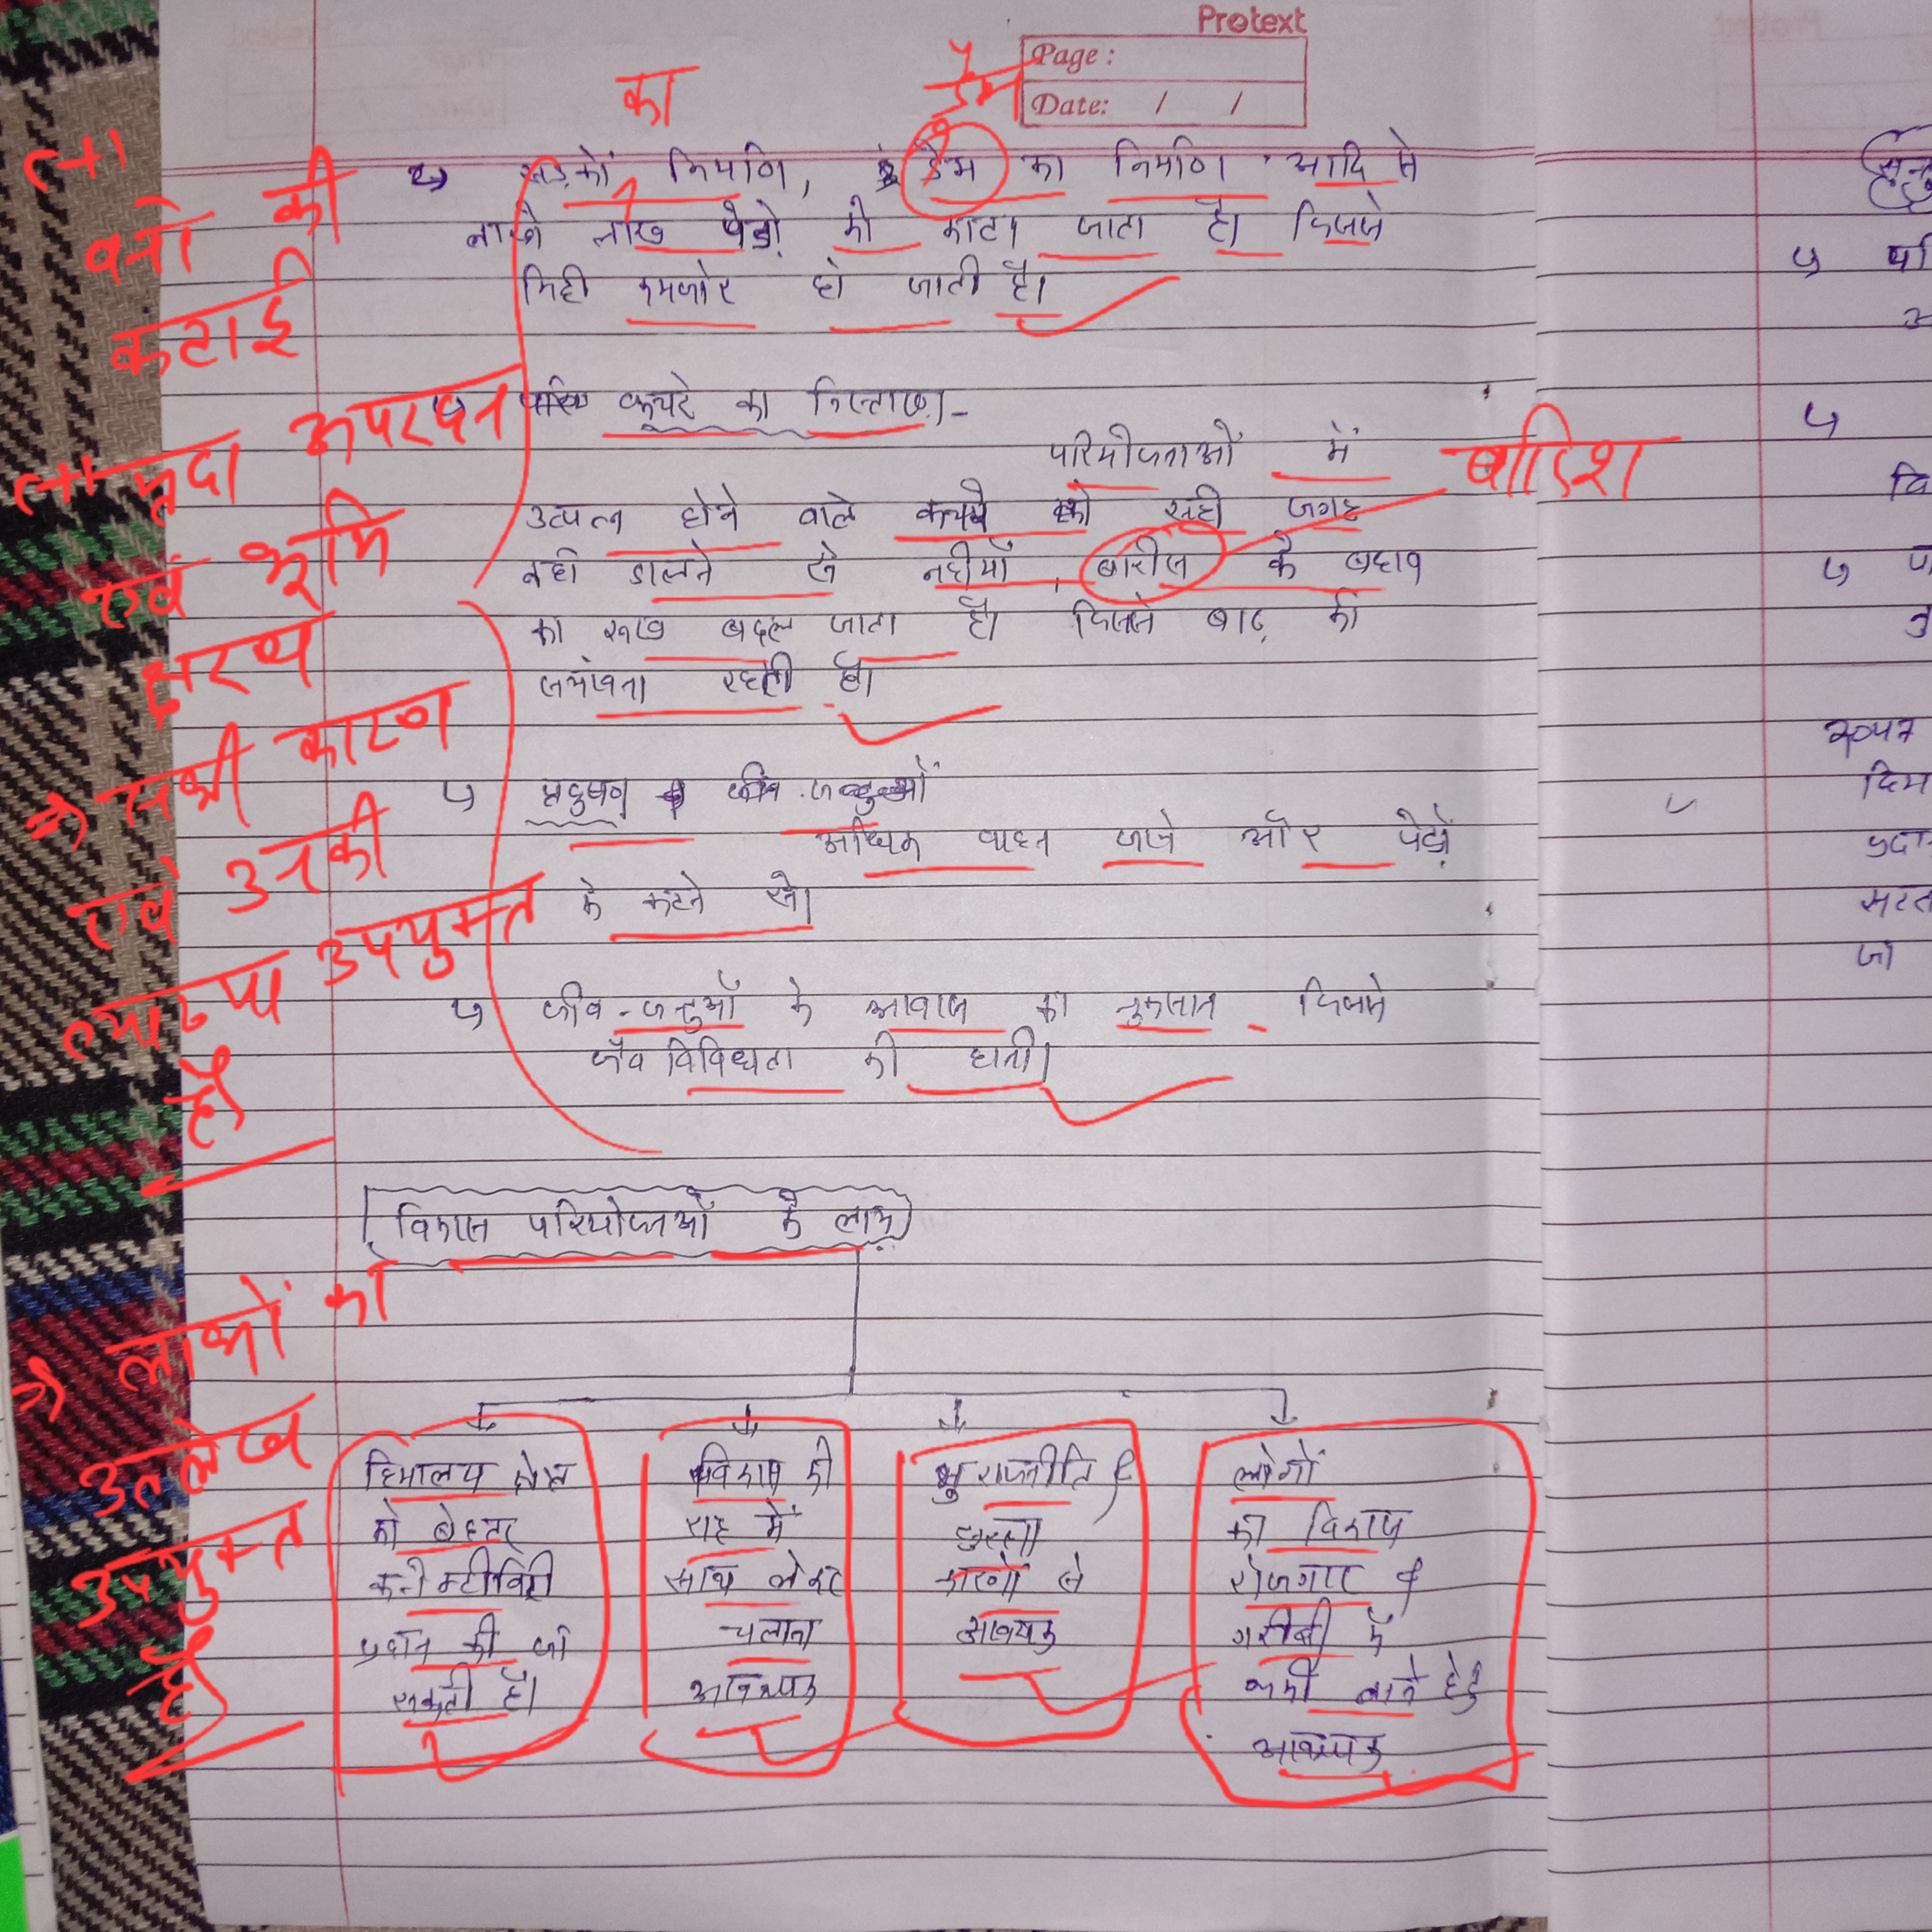 Protext
Page :
Date: / /
का
डैम
सड़कों निर्माण, डेम का निर्माण आदि से
लाखो लाख पेडो़ को काटा जाता है। जिससे
मिट्टी कमजोर हो जाती है।
कचरे का निस्तारण-
परियोजनाओं में
उत्पन्न होने वाले कचरे को सही जगह
नही डालने से नदीयाँ, बारीस के बहाव
का रूख बदल जाता है। जिससे बाढ़ की
संभावना रहती है।
प्रदुषण जीव-जन्तुओं
अधिक वाहन जाने और पेडो़
के कटने से।
जीव-जन्तुओं के आवास का नुकसान जिससे
जैव विविधता की हानी।
बारिश
(+) वनों की
कटाई
(+) मृदा अपरदन
एवं भूमि
क्षरण
→ सभी कारण
एवं उनकी
व्याख्या उपयुक्त
है।
विकास परियोजनाओं के लाभ
→ लाभों का
उल्लेख
उपयुक्त
है।
हिमालय क्षेत्र
को बेहतर
कनेक्टीविटी
प्रदान की जा
सकती है।
विकास की
राह में
साथ लेकर
चलाना
आवश्यक
भु राजनीति &
सुरक्षा
कारणों से
आवश्यक
लोगों
का विकास
रोजगार &
गरीबी में
कमी लाने हेतु
आवश्यक